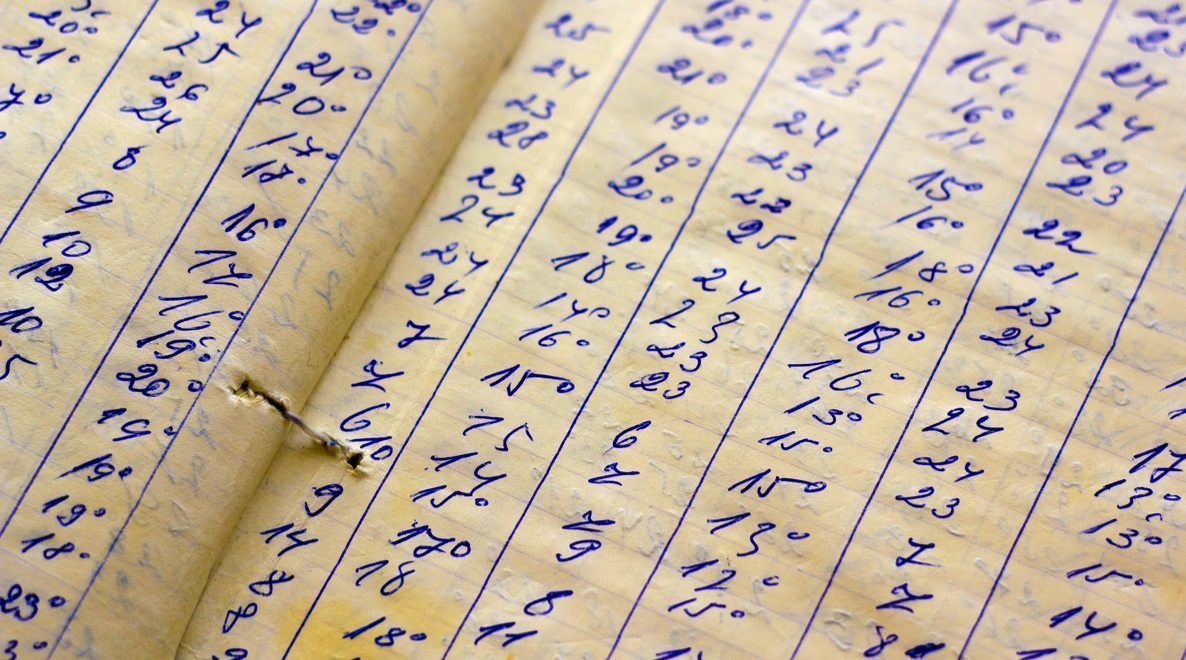 20°
21°
24
25
26
24
8
9
10
12
10
22°
21°
20°
17°
17°
16°
17
16°
19°
20°
19°
19°
19°
18°
23°
25
24
23
28
23
24
24
24
7
7
6
10
9
14
8
8
18°
20°
21°
19°
19°
20°
19°
18°
14°
16°
15°
15
14
15°
17°
18
18°
25
21
23
24
23
22
25
24
23
23
23
6
7
7
9
8
11
15°
16°
16°
14
15°
16°
18°
16°
18°
16°
13°
15°
15°
13°
12°
15°
23
24
24
20
23
22
21
23
24
23
24
24
23
7
7
8
17
13°
13°
15°
14°